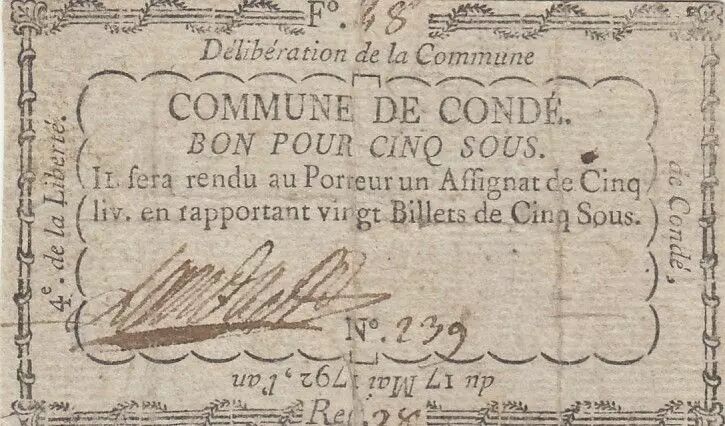 Fo. 48
Délibération de la Commune
de Condé,
du 17 Mai 1792, l'an
4e. de la Liberté.
COMMUNE DE CONDÉ.
BON POUR CINQ SOUS.
Il sera rendu au Porteur un Assignat de Cinq
liv. en rapportant vingt Billets de Cinq Sous.
No. 239
Reg. 28